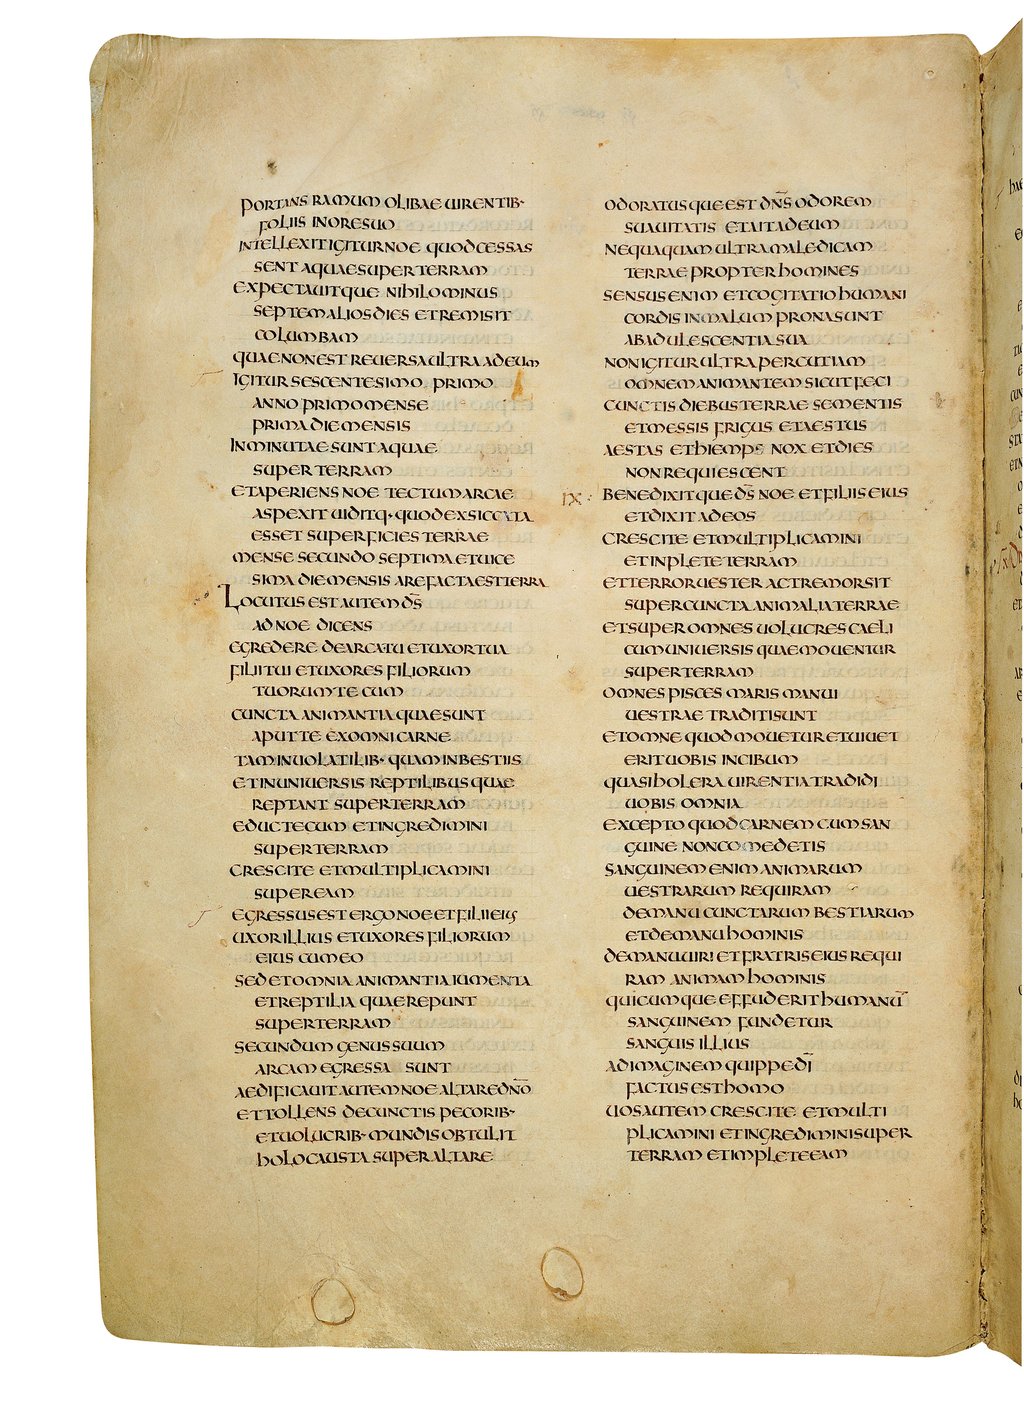 PORTANS RAMUM OLIBAE UIRENTIB·
FOLIIS IN ORE SUO
INTELLEXIT IGITUR NOE QUOD CESSAS
SENT AQUAE SUPER TERRAM
EXPECTAUITQUE NIHILOMINUS
SEPTEM ALIOS DIES ET REMISIT
COLUMBAM
QUAE NON EST REUERSA ULTRA AD EUM
IGITUR SESCENTESIMO PRIMO
ANNO PRIMO MENSE
PRIMA DIE MENSIS
INMINUTAE SUNT AQUAE
SUPER TERRAM
ET APERIENS NOE TECTUM ARCAE
ASPEXIT UIDITQ· QUOD EXSICCATA
ESSET SUPERFICIES TERRAE
MENSE SECUNDO SEPTIMA ET UICE
SIMA DIE MENSIS AREFACTA EST TERRA
LOCUTUS EST AUTEM D̄S
AD NOE DICENS
EGREDERE DE ARCA TU ET UXOR TUA
FILII TUI ET UXORES FILIORUM
TUORUM TECUM
CUNCTA ANIMANTIA QUAE SUNT
APUT TE EX OMNI CARNE
TAM IN UOLATILIB· QUAM IN BESTIIS
ET IN UNIUERSIS REPTILIBUS QUAE
REPTANT SUPER TERRAM
EDUC TECUM ET INGREDIMINI
SUPER TERRAM
CRESCITE ET MULTIPLICAMINI
SUPER EAM
EGRESSUS EST ERGO NOE ET FILII EIUS
UXOR ILLIUS ET UXORES FILIORUM
EIUS CUM EO
SED ET OMNIA ANIMANTIA IUMENTA
ET REPTILIA QUAE REPUNT
SUPER TERRAM
SECUNDUM GENUS SUUM
ARCAM EGRESSA SUNT
AEDIFICAUIT AUTEM NOE ALTARE DN̄O
ET TOLLENS DE CUNCTIS PECORIB·
ET UOLUCRIB· MUNDIS OBTULIT
HOLOCAUSTA SUPER ALTARE
ODORATUSQUE EST DN̄S ODOREM
SUAUITATIS ET AIT AD EUM
NEQUAQUAM ULTRA MALEDICAM
TERRAE PROPTER HOMINES
SENSUS ENIM ET COGITATIO HUMANI
CORDIS IN MALUM PRONA SUNT
AB ADULESCENTIA SUA
NON IGITUR ULTRA PERCUTIAM
OMNEM ANIMANTEM SICUT FECI
CUNCTIS DIEBUS TERRAE SEMENTIS
ET MESSIS FRIGUS ET AESTUS
AESTAS ET HIEMPS NOX ET DIES
NON REQUIESCENT
IX· BENEDIXITQUE D̄S NOE ET FILIIS EIUS
ET DIXIT AD EOS
CRESCITE ET MULTIPLICAMINI
ET INPLETE TERRAM
ET TERROR UESTER AC TREMOR SIT
SUPER CUNCTA ANIMALIA TERRAE
ET SUPER OMNES UOLUCRES CAELI
CUM UNIUERSIS QUAE MOUENTUR
SUPER TERRAM
OMNES PISCES MARIS MANUI
UESTRAE TRADITI SUNT
ET OMNE QUOD MOUETUR ET UIUET
ERIT UOBIS IN CIBUM
QUASI HOLERA UIRENTIA TRADIDI
UOBIS OMNIA
EXCEPTO QUOD CARNEM CUM SAN
GUINE NON COMEDETIS
SANGUINEM ENIM ANIMARUM
UESTRARUM REQUIRAM
DE MANU CUNCTARUM BESTIARUM
ET DE MANU HOMINIS
DE MANU UIRI ET FRATRIS EIUS REQUI
RAM ANIMAM HOMINIS
QUICUMQUE EFFUDERIT HUMANŪ
SANGUINEM FUNDETUR
SANGUIS ILLIUS
AD IMAGINEM QUIPPE DĪ
FACTUS EST HOMO
UOS AUTEM CRESCITE ET MULTI
PLICAMINI ET INGREDIMINI SUPER
TERRAM ET IMPLETE EAM